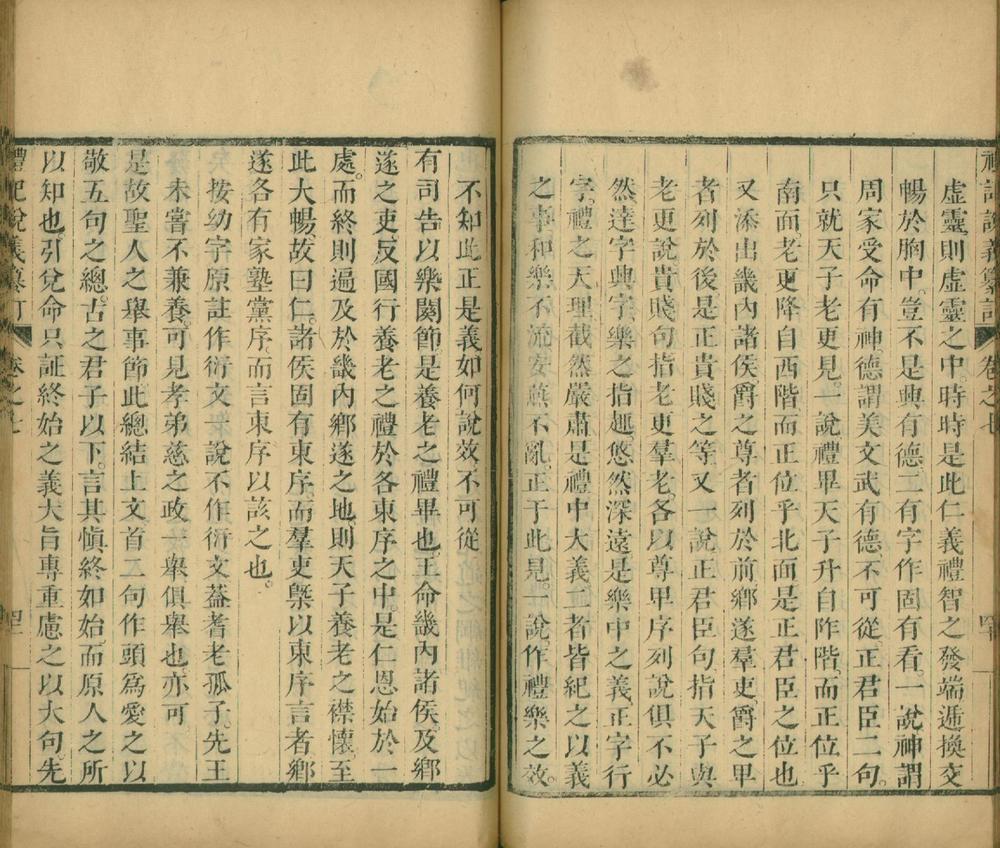 禮記說義纂訂 卷之七
虛靈則虛靈之中時時是此仁義禮智之發端遞換交
暢於胸中。豈不是興有德二有字作固有看。一說神謂
周家受命有神德謂美文武有德不可從正君臣二句。
只就天子老更見。一說禮畢天子升自阼階而正位乎
南面。老更降自西階而正位乎北面是正君臣之位也
又添出畿內諸侯爵之尊者列於前鄉遂羣吏爵之卑
者列於後是正貴賤之等又一說正君臣句指天子與
老更說貴賤句指老更羣老。各以尊卑序列說俱不必
然達字典字樂之指趣。悠然深遠是樂中之義。正字行
字。禮之天理截然嚴肅是禮中大義二者皆紀之以義
之事和樂不流安燕不亂。正于此見一說作禮樂之效。
不知此正是義如何說效不可從
有司告以樂闋節。是養老之禮畢也。王命畿內諸侯。及鄉
遂之吏反國行養老之禮於各東序之中。是仁恩始於一
處。而終則遍及於畿內鄉遂之地則天子養老之襟懷。至
此大暢。故曰仁。諸侯固有東序。而羣吏槩以東序言者鄉
遂各有家塾黨序。而言東序以該之也。
按幼字原註作衍文一說不作衍文葢耆老孤子。先王
未嘗不兼養。可見孝弟慈之政一舉俱舉也亦可
是故聖人之舉事節此總結上文。首二句作頭爲愛之以
敬五句之總。古之君子以下。言其愼終如始。而原人之所
以知也。引兌命只証終始之義大旨專重慮之以大句。先
禮記說義纂訂 卷之七